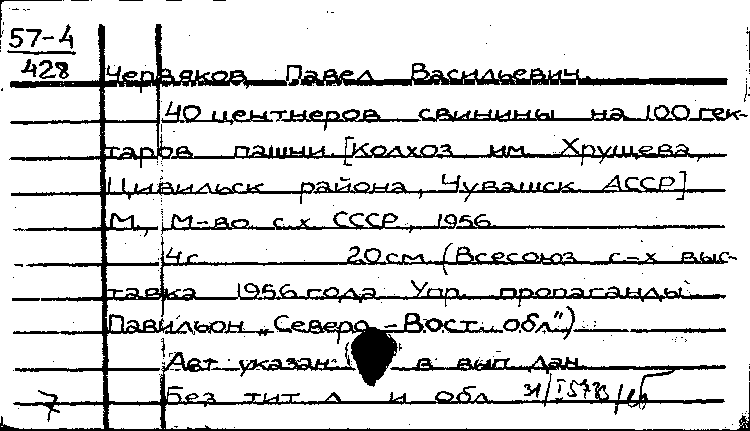 57-4
428
Червяков, Павел Васильевич.
40 центнеров свинины на 100 гек-
таров пашни. [Колхоз им. Хрущева,
Цивильск. района, Чувашск. АССР]
М., М-во с.х. СССР, 1956.
4 с. 20 см. (Всесоюз. с-х. выс-
тавка 1956 года. Упр. пропаганды.
Павильон „Северо-Вост. обл.")
Авт. указан в вып. дан.
Без тит. л. и обл.
7